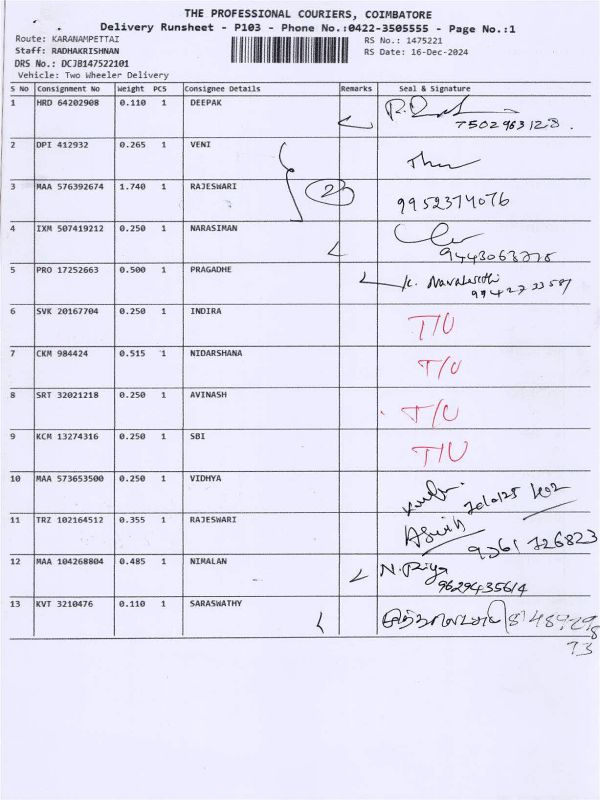 THE PROFESSIONAL COURIERS, COIMBATORE
Delivery Runsheet - P103 - Phone No.:0422-3505555 - Page No.:1
Route: KARANAMPETTAI
RS No.: 1475221
Staff: RADHAKRISHNAN
RS Date: 16-Dec-2024
DRS No.: DCJB147522101
Vehicle: Two Wheeler Delivery
S No Consignment No Weight PCS Consignee Details Remarks Seal & Signature
1 HRD 64202908 0.110 1 DEEPAK
7502963128.
2 DPI 412932 0.265 1 VENI
3 MAA 576392674 1.740 1 RAJESWARI 2 9952374076
4 IXM 507419212 0.250 1 NARASIMAN
5 PRO 17252663 0.500 1 PRAGADHE
6 SVK 20167704 0.250 1 INDIRA T/U
7 CKM 984424 0.515 1 NIDARSHANA T/U
8 SRT 32021218 0.250 1 AVINASH T/U
9 KCM 13274316 0.250 1 SBI T/U
10 MAA 573653500 0.250 1 VIDHYA
11 TRZ 102164512 0.355 1 RAJESWARI Aswin
9361726823
12 MAA 104268804 0.485 1 NIMALAN N. Priya
9629435614
13 KVT 3210476 0.110 1 SARASWATHY